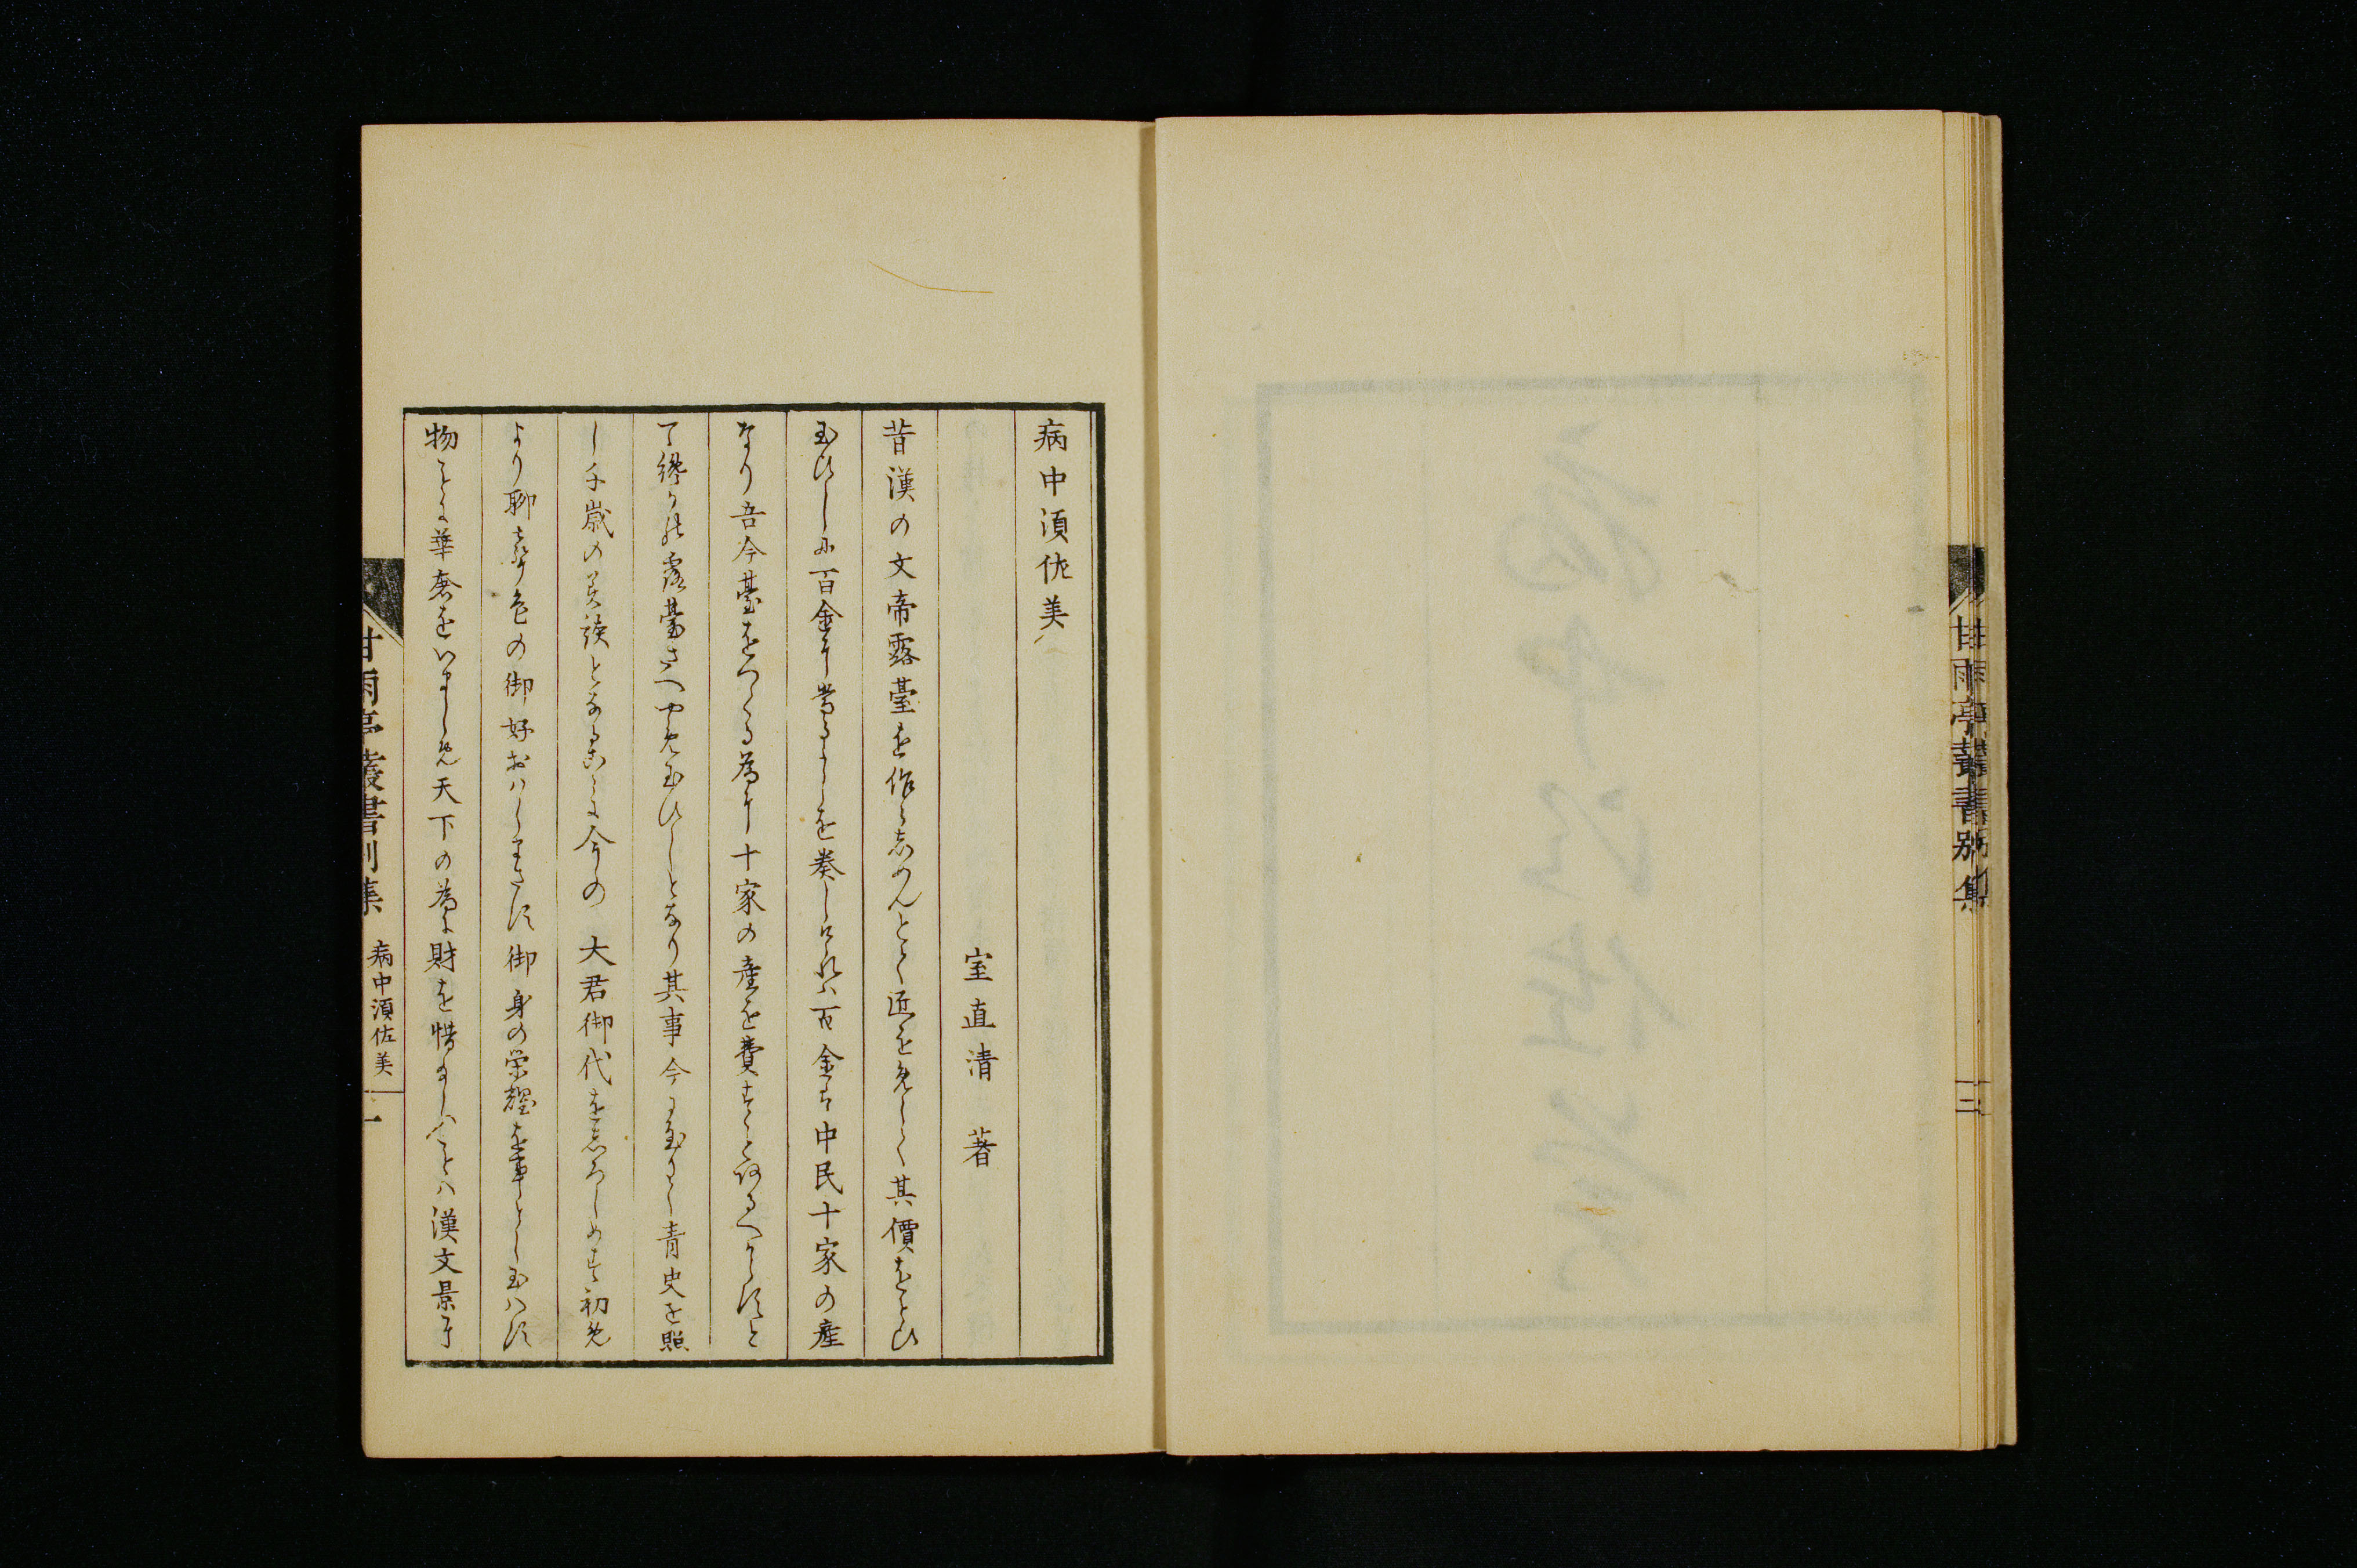 甘雨亭叢書別集
二
病中須佐美
室直清著
昔漢の文帝露臺を作らしめんとて匠をめして其價をとひ
玉ひしに百金に當るよしを奏しけれは百金は中民十家の産
なり吾今臺をつくる為に十家の産を費すことあるへからすと
て纔の露臺さへやめ玉ひしとなり其事今に至りて青史を照
し千歳の美談となることに今の 大君御代をしろしめす初め
より聊聲色の御好おはしまさす御身の栄耀を事とし玉はす
物ことに華奢をいましめ天下の為に財を惜ましへことは漢文景に
甘雨亭叢書別集
病中須佐美
一